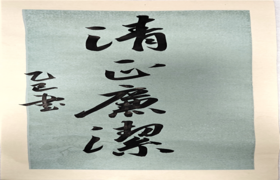 清正廉潔
乙巳書